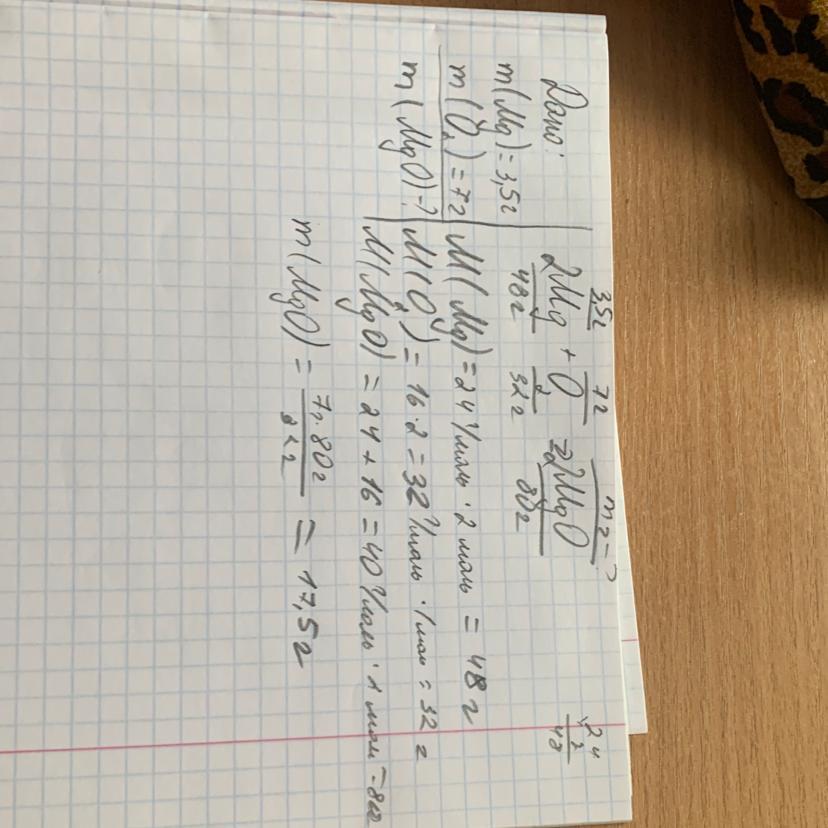 Дано:
m(Mg)=3,5г
m(O₂)=7г
m(MgO)-?
3,5г 7г m г=?
2Mg + O₂ = 2MgO
48г 32г 80г
M(Mg)=24г/моль · 2 моль = 48 г
M(O₂)=16·2=32г/моль · 1 моль = 32 г
M(MgO)=24+16=40г/моль · 2 моль = 80г
m(MgO)= 7г·80г / 32г = 17,5г
24
2
48